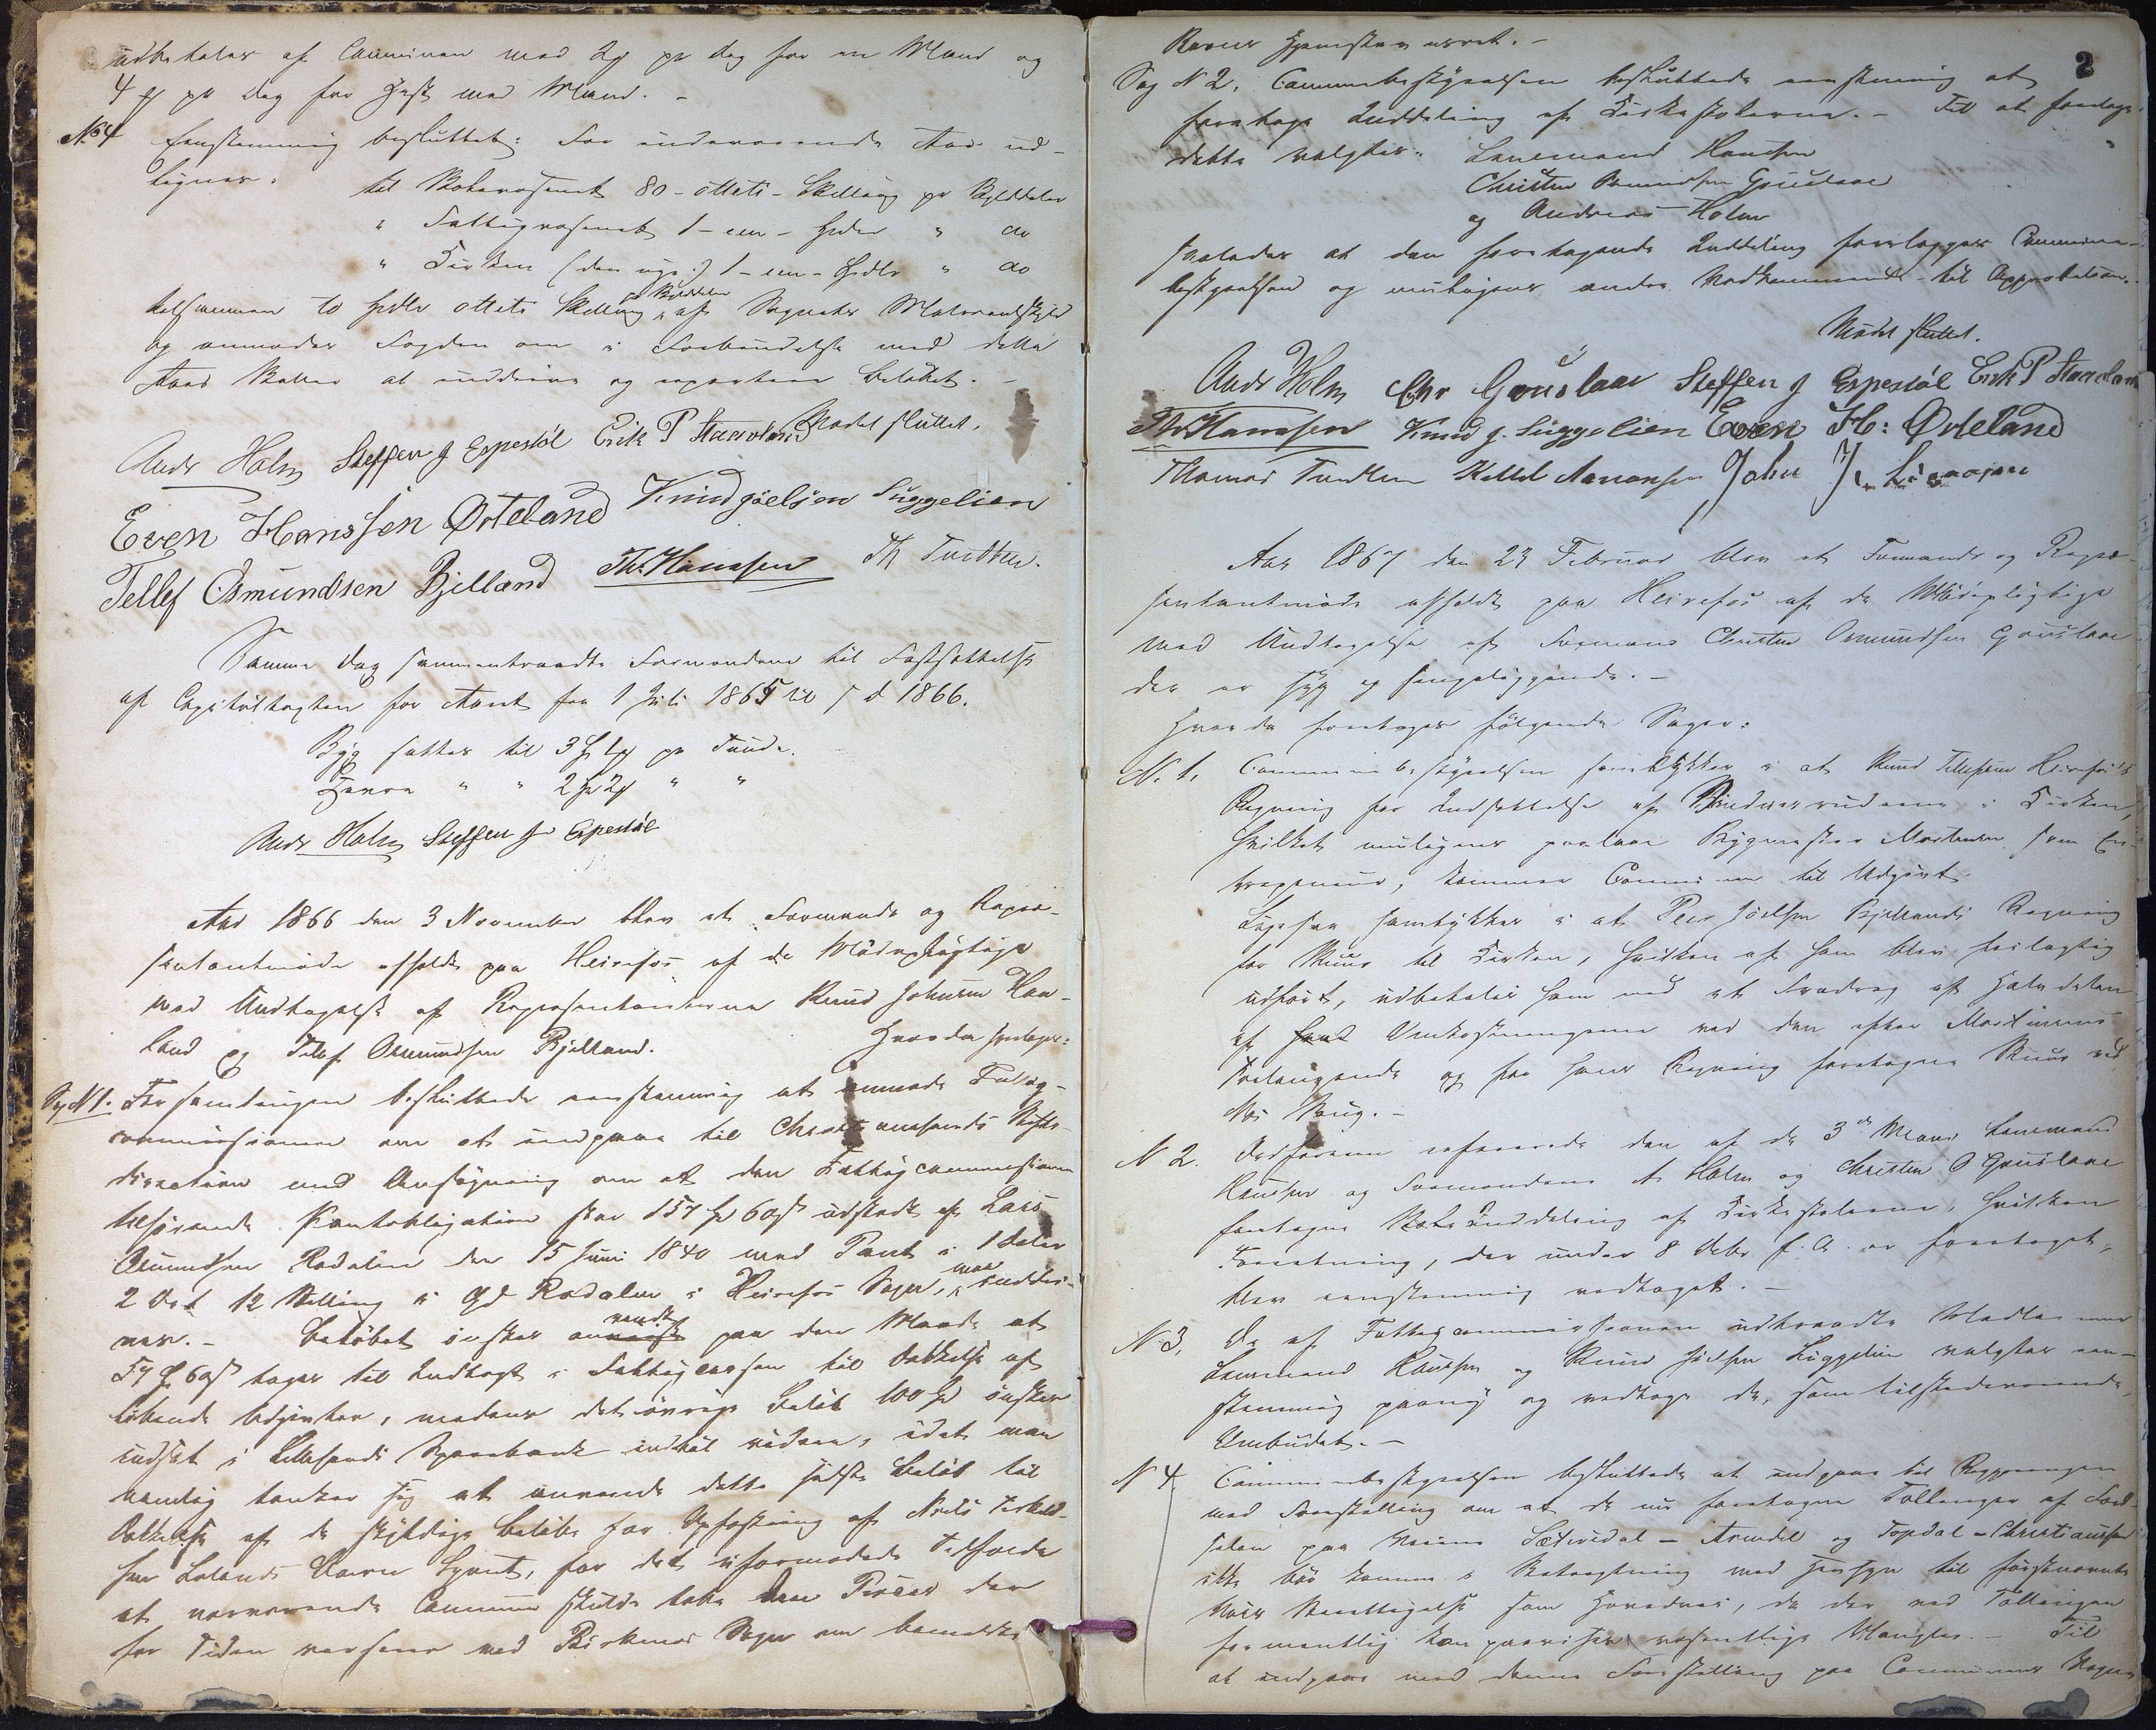 udbetales af Communen med 2 pr Dag for en Mand og
4 pr Dag for Hest med Mand. -
No 4 Eenstemmig besluttet: For indeværende Aar ud-
lignes:
til Skolevæsenet 80 - otteti - Skilling pr Skylddaler
" Fattigvæsenet 1 - een - Spdlr " do
" Kirken (den nye) 1 - een - Spdlr " do
tilsammen to Spdlr otteti Skilling pr Skylddaler af Sognets Matrikulskyld
og anmodes Fogden om i Forbindelse med dette
Aars Skatter at inddrive og repartere Beløbet. -
Mødet sluttet.
Andr Holm Steffen J Espestøl Erik P Staveland
Even Hanssen Ørteland Knud Joelsen Suggelien
Tellef Osmundsen Bjelland Th. Hanssen Th Tveitten.
Samme Dag sammentraadte Formændene til Fastsættelse
af Capitelstaxten for Aaret fra 1 Juli 1865 til 1 d 1866.
Byg sættes til 3 Sp 1 pr Tønde.
Havre " " 2 Sp 2 " "
Andr Holm Steffen J Espestøl
Aar 1866 den 3 November blev et Formands og Repræ-
sentantmøde afholdt paa Heirefos af de Mødepligtige
med Undtagelse af Repræsentanterne Knud Johnsen Hau-
land og Tellef Osmundsen Bjelland. Hvorda foretoges:
Sag N 1. Forsamlingen besluttede eenstemmig at anmode Fattig-
commissionen om at indgaae til Christianssands Stifts-
direction med Ansøgning om at den Fattigcommissionen
tilhørende Pantobligation stor 157 Sp 60 s udstedt af Lars
Osmundsen Rodalen den 15 Juni 1840 med Pant i 1 Daler
2 Ort 12 Skilling i Gd Rodalen i Heirefos Sogn, maa inddri-
ves. - Beløbet ønskes anvendt paa den Maade at
57 Sp 60 s tages til Indtægt i Fattigcassen til Dækkelse af
løbende Udgivter, medens det øvrige Beløb 100 Sp ønskes
indsat i Lillesands Sparebank indtil videre, idet man
nemlig tænker sig at anvende dette sidste Beløb til
Dækkelse af de skyldige Beløb for Opfostring af Niels Terkel-
sen Lolands Børn Synt, for det uformodede Tilfælde
at nærværende Commune skulde tabe den Proces der
for Tiden verserer med Birkenes Sogn om bemeldte
2
Børns Hjemstavnsret. -
Sag N 2. Communebestyrelsen besluttede eenstemmig at
foretage Inddeling af Kirkestolerne. - Til at foretage
dette valgtes: Lensmand Hanssen
Christen Osmundsen Gouslaae
og Andreas Holm
saaledes at den foretagende Inddeling forelægges Commune-
bestyrelsen og muligens andre Vedkommende til Approbation. -
Mødet sluttet.
Andr Holm Chr Gouslaae Steffen J Espestøl Erik P Staveland
Th. Hanssen Knud J. Suggelien Even H: Ørteland
Thomas Tveitten Kittel Aanonsen John J.
Aar 1867 den 23 Februar blev et Formands og Repræ-
sentantmøde afholdt paa Heirefos af de Mødepligtige
med Undtagelse af Formand Christen Osmundsen Gouslaae
der er syg og sengeliggende. -
Hvorda foretoges følgende Sager:
N. 1. Communebestyrelsen samtykker i at Knud Tellefsen Heirefos's
Regning for Indsættelse af Vinduesruderne i Kirken,
hvilket muligens paalaae Bygmester Mortensen som En-
treprenør, kommer Communen til Udgivt.
Ligesaa samtykkes i at Peer Joelsen Bjellands Regning
for Muur til Kirken, hvilken af ham blev feilagtig
udført, udbetales ham med et Fradrag af Halvdelen
af Omkostningerne ved den efter Mortensens
Forlangende og for hans Regning foretagne Muur ved
N 2. Ordføreren refererede den af de 3de Mænd Lensmand
Hanssen og Formændene A Holm og Christen O Gouslaae
foretagne Inddeling af Kirkestolerne, hvilken
Forretning, der under 8 Debr f. A. er foretaget,
blev eenstemmig vedtaget. -
N 3. De af Fattigcommissionen udtraadte Medlemmer
Lensmand Hanssen og Knud Joelsen Suggelien valgtes een-
stemmig paany og vedtoge de, som tilstedeværende,
Ombudet. -
N 4 Communebestyrelsen besluttede at indgaae til Regjeringen
med Forestilling om at de nu foretagne Tællinger af Færd-
selen paa Veiene Sætersdal - Arendal og Topdal - Christianssand
ikke bør komme i Betragtning med Hensyn til førstnævnte
Veies Berettigelse som Hovedvei, da der ved Tællingen
formentlig kan paavises væsentlige Mangler. - Til
at indgaae med denne Forestilling paa Communens Vegne